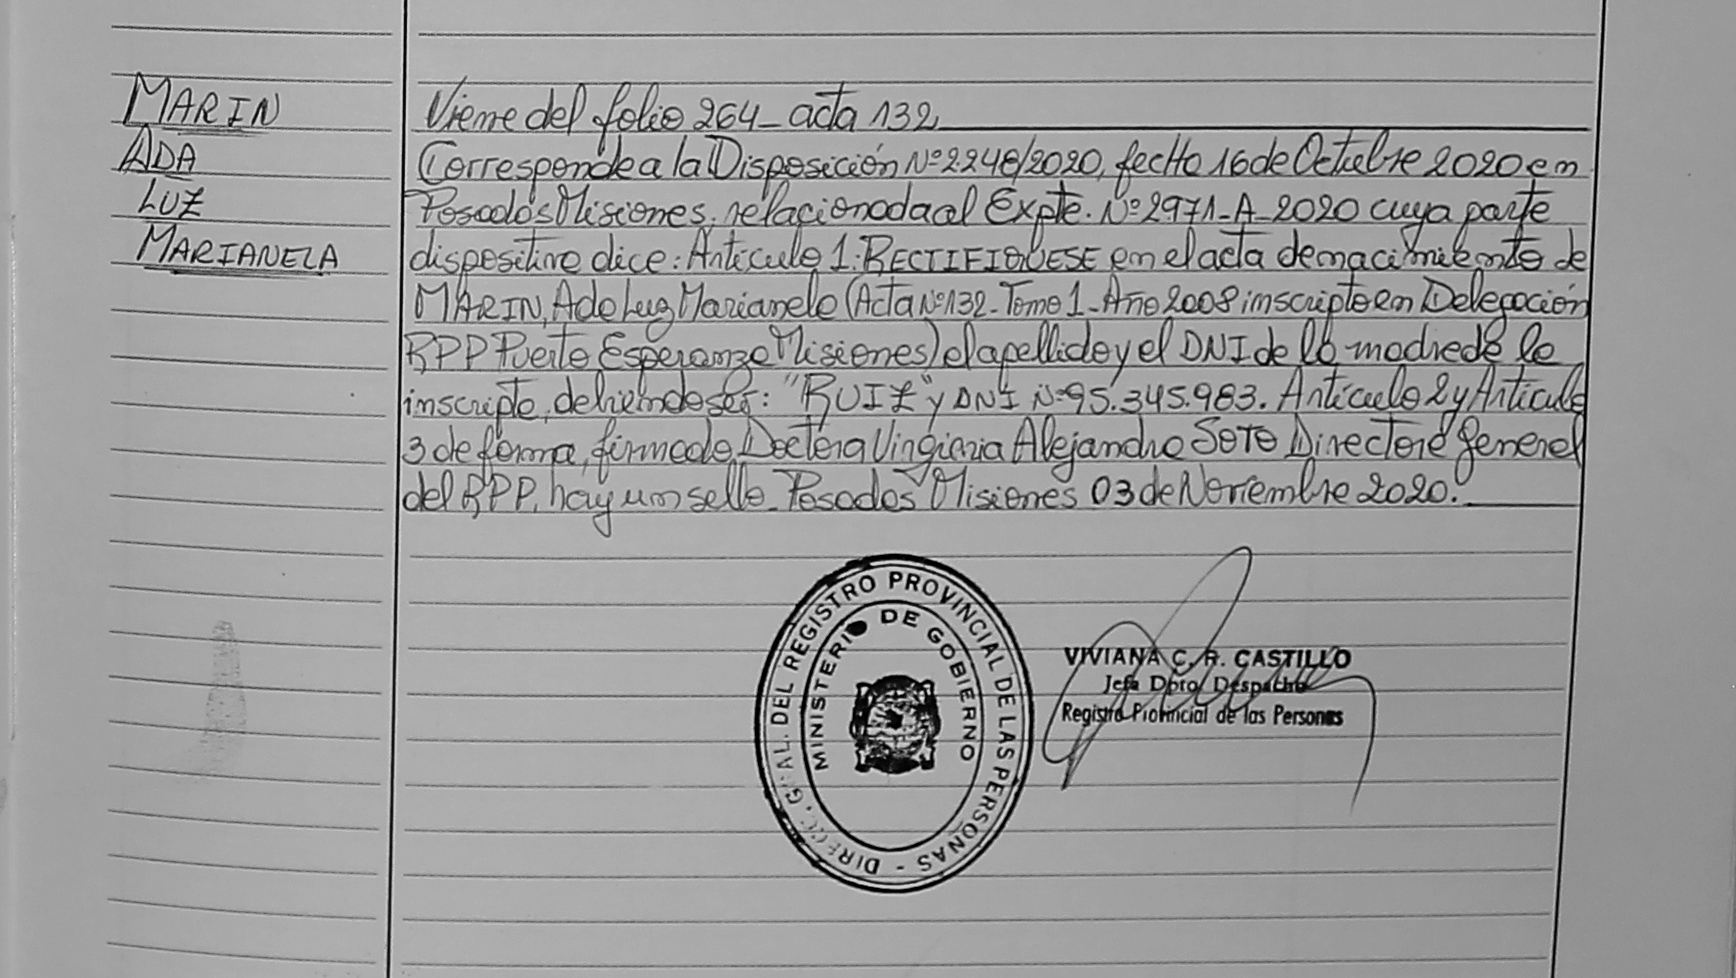 MARIN
ADA
LUZ
MARIANELA
Viene del folio 264_ acta 132
Corresponde a la Disposición Nº 2248/2020, fecHa 16 de Octubre 2020 en
Posadas Misiones, relacionada al Expte. Nº 2971_A_2020 cuya parte
dispositiva dice: Artículo 1: RECTIFIQUESE en el acta de nacimiento de
MARIN, Ada Luz Marianela (Acta Nº 132_Tomo 1_Año 2008 inscripta en Delegación
RPP Puerto Esperanza Misiones) el apellido y el DNI de la madre de la
inscripta, debiendo ser: "RUIZ" y DNI Nº 95.345.983. Artículo 2 y Artículo
3 de forma, firmado Doctora Virginia Alejandra SOTO Directora General
del RPP, hay un sello_ Posadas Misiones 03 de Noviembre 2020.
DIRECC. GRAL. DEL REGISTRO PROVINCIAL DE LAS PERSONAS -
MINISTERIO DE GOBIERNO
VIVIANA C. R. CASTILLO
Jefa Dpto. Despacho
Registro Provincial de las Personas